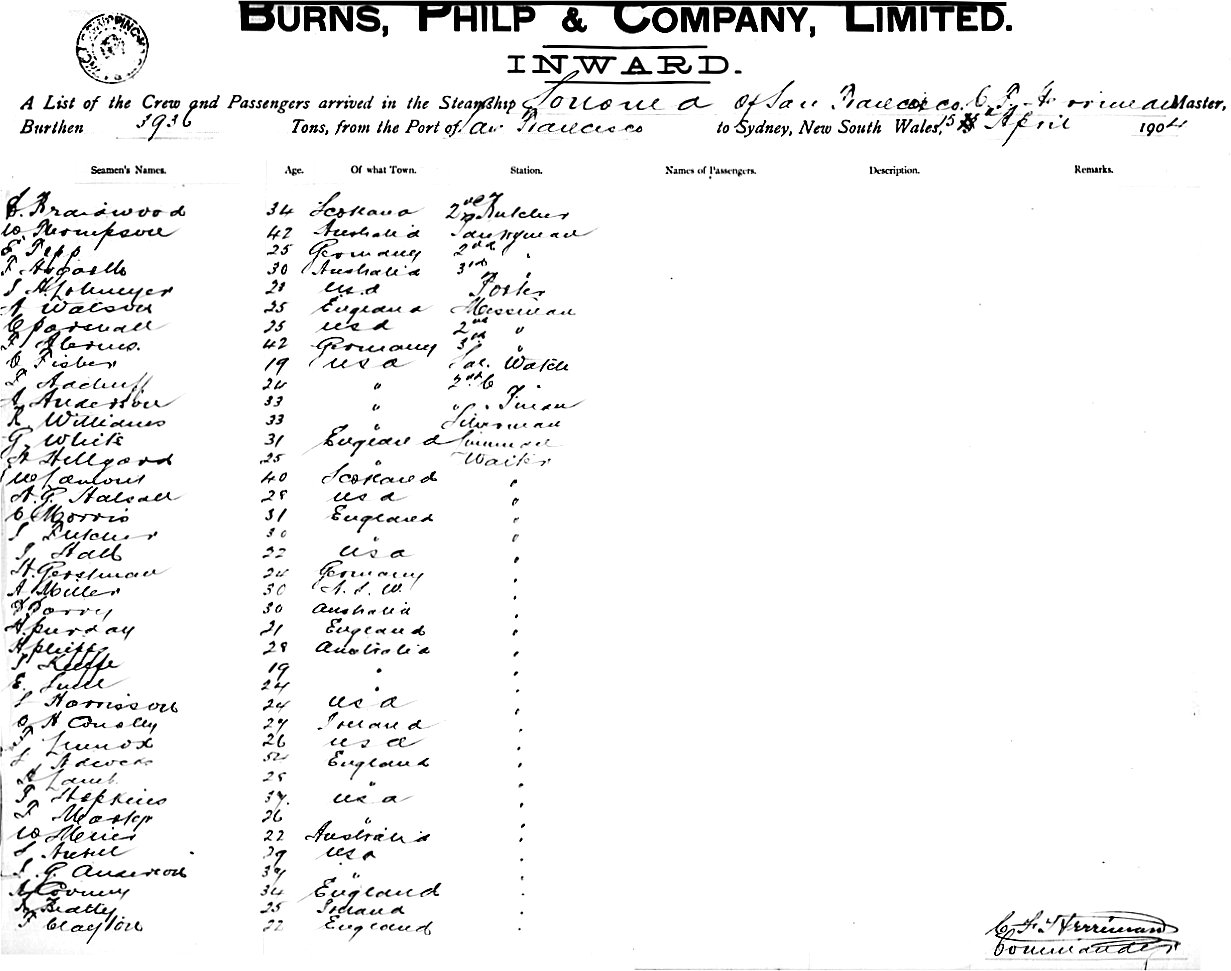 BURNS, PHILP & COMPANY, LIMITED.
INWARD.
A List of the Crew and Passengers arrived in the Steamship Sonoma Of San Francisco. C. F. Herriman Master,
Burthen 3936 Tons, from the Port of San Francisco to Sydney, New South Wales, 15 April 1904
Seamen's Names. Age. Of what Town. Station. Names of Passengers. Description. Remarks.
Braidwood 34 Scotland 2nd Butcher
W Thompson 42 Australia Pantryman
E 25 Germany 2nd "
F 30 Australia 3rd "
28 USA Porter
A Watson 25 England Messman
C 25 USA 2nd "
F 42 Germany 3rd "
O Fisher 19 USA Sal. Watch
F 24 " 2nd C
A Anderson 33 " "
R Williams 33 " Silverman
G White 31 England Linenman
H Hellgard 25 " Waiter
W Lamont 40 Scotland "
H. G. Halsall 28 USA "
C Morris 31 England "
J Butcher 30 " "
J Hall 22 USA "
H. Gerstman 24 Germany "
A Miller 30 N. S. W. "
Barry 30 Australia "
H Purday 21 England "
H 28 Australia "
J 19 " "
E. 24 " "
J Harrisson 24 USA "
O H Conolly 27 Ireland "
F Lennox 26 USA "
Adcock 52 England "
H Lamb 25 "
F Hopkins 37. USA "
F 26 " "
W Meier 22 Australia "
39 USA "
J. G. Anderson 39 " "
A Cooney 34 England "
Beatty 25 Ireland "
F Clayton 22 England "
C. F. Herriman
Commander